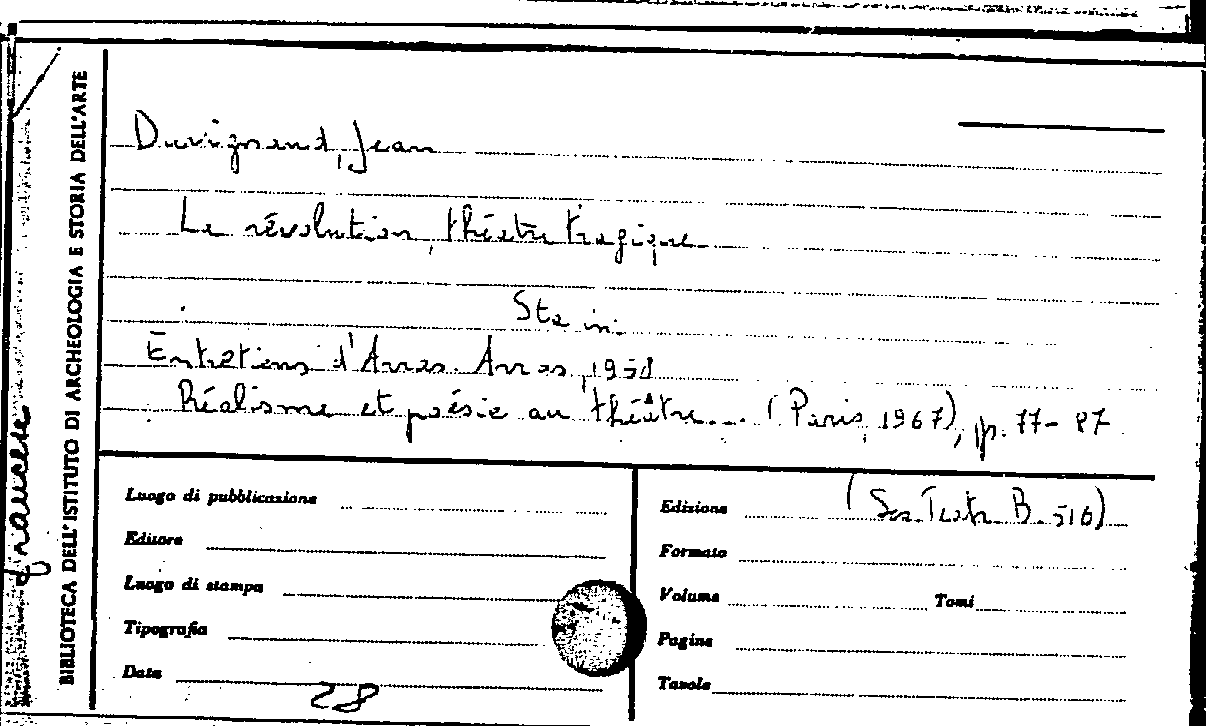 BIBLIOTECA DELL'ISTITUTO DI ARCHEOLOGIA E STORIA DELL'ARTE
Duvignaud, Jean
La révolution, théâtre tragique
Sta in:
Entretiens d'Arras. Arras, 1958
Réalisme et poésie au théâtre... (Paris, 1967), pp. 77-87
Luogo di pubblicazione
Editore
Luogo di stampa
Tipografia
Data
28
Edizione (Sez. Teatr. B. 516)
Formato
Volume Tomi
Pagine
Tavole